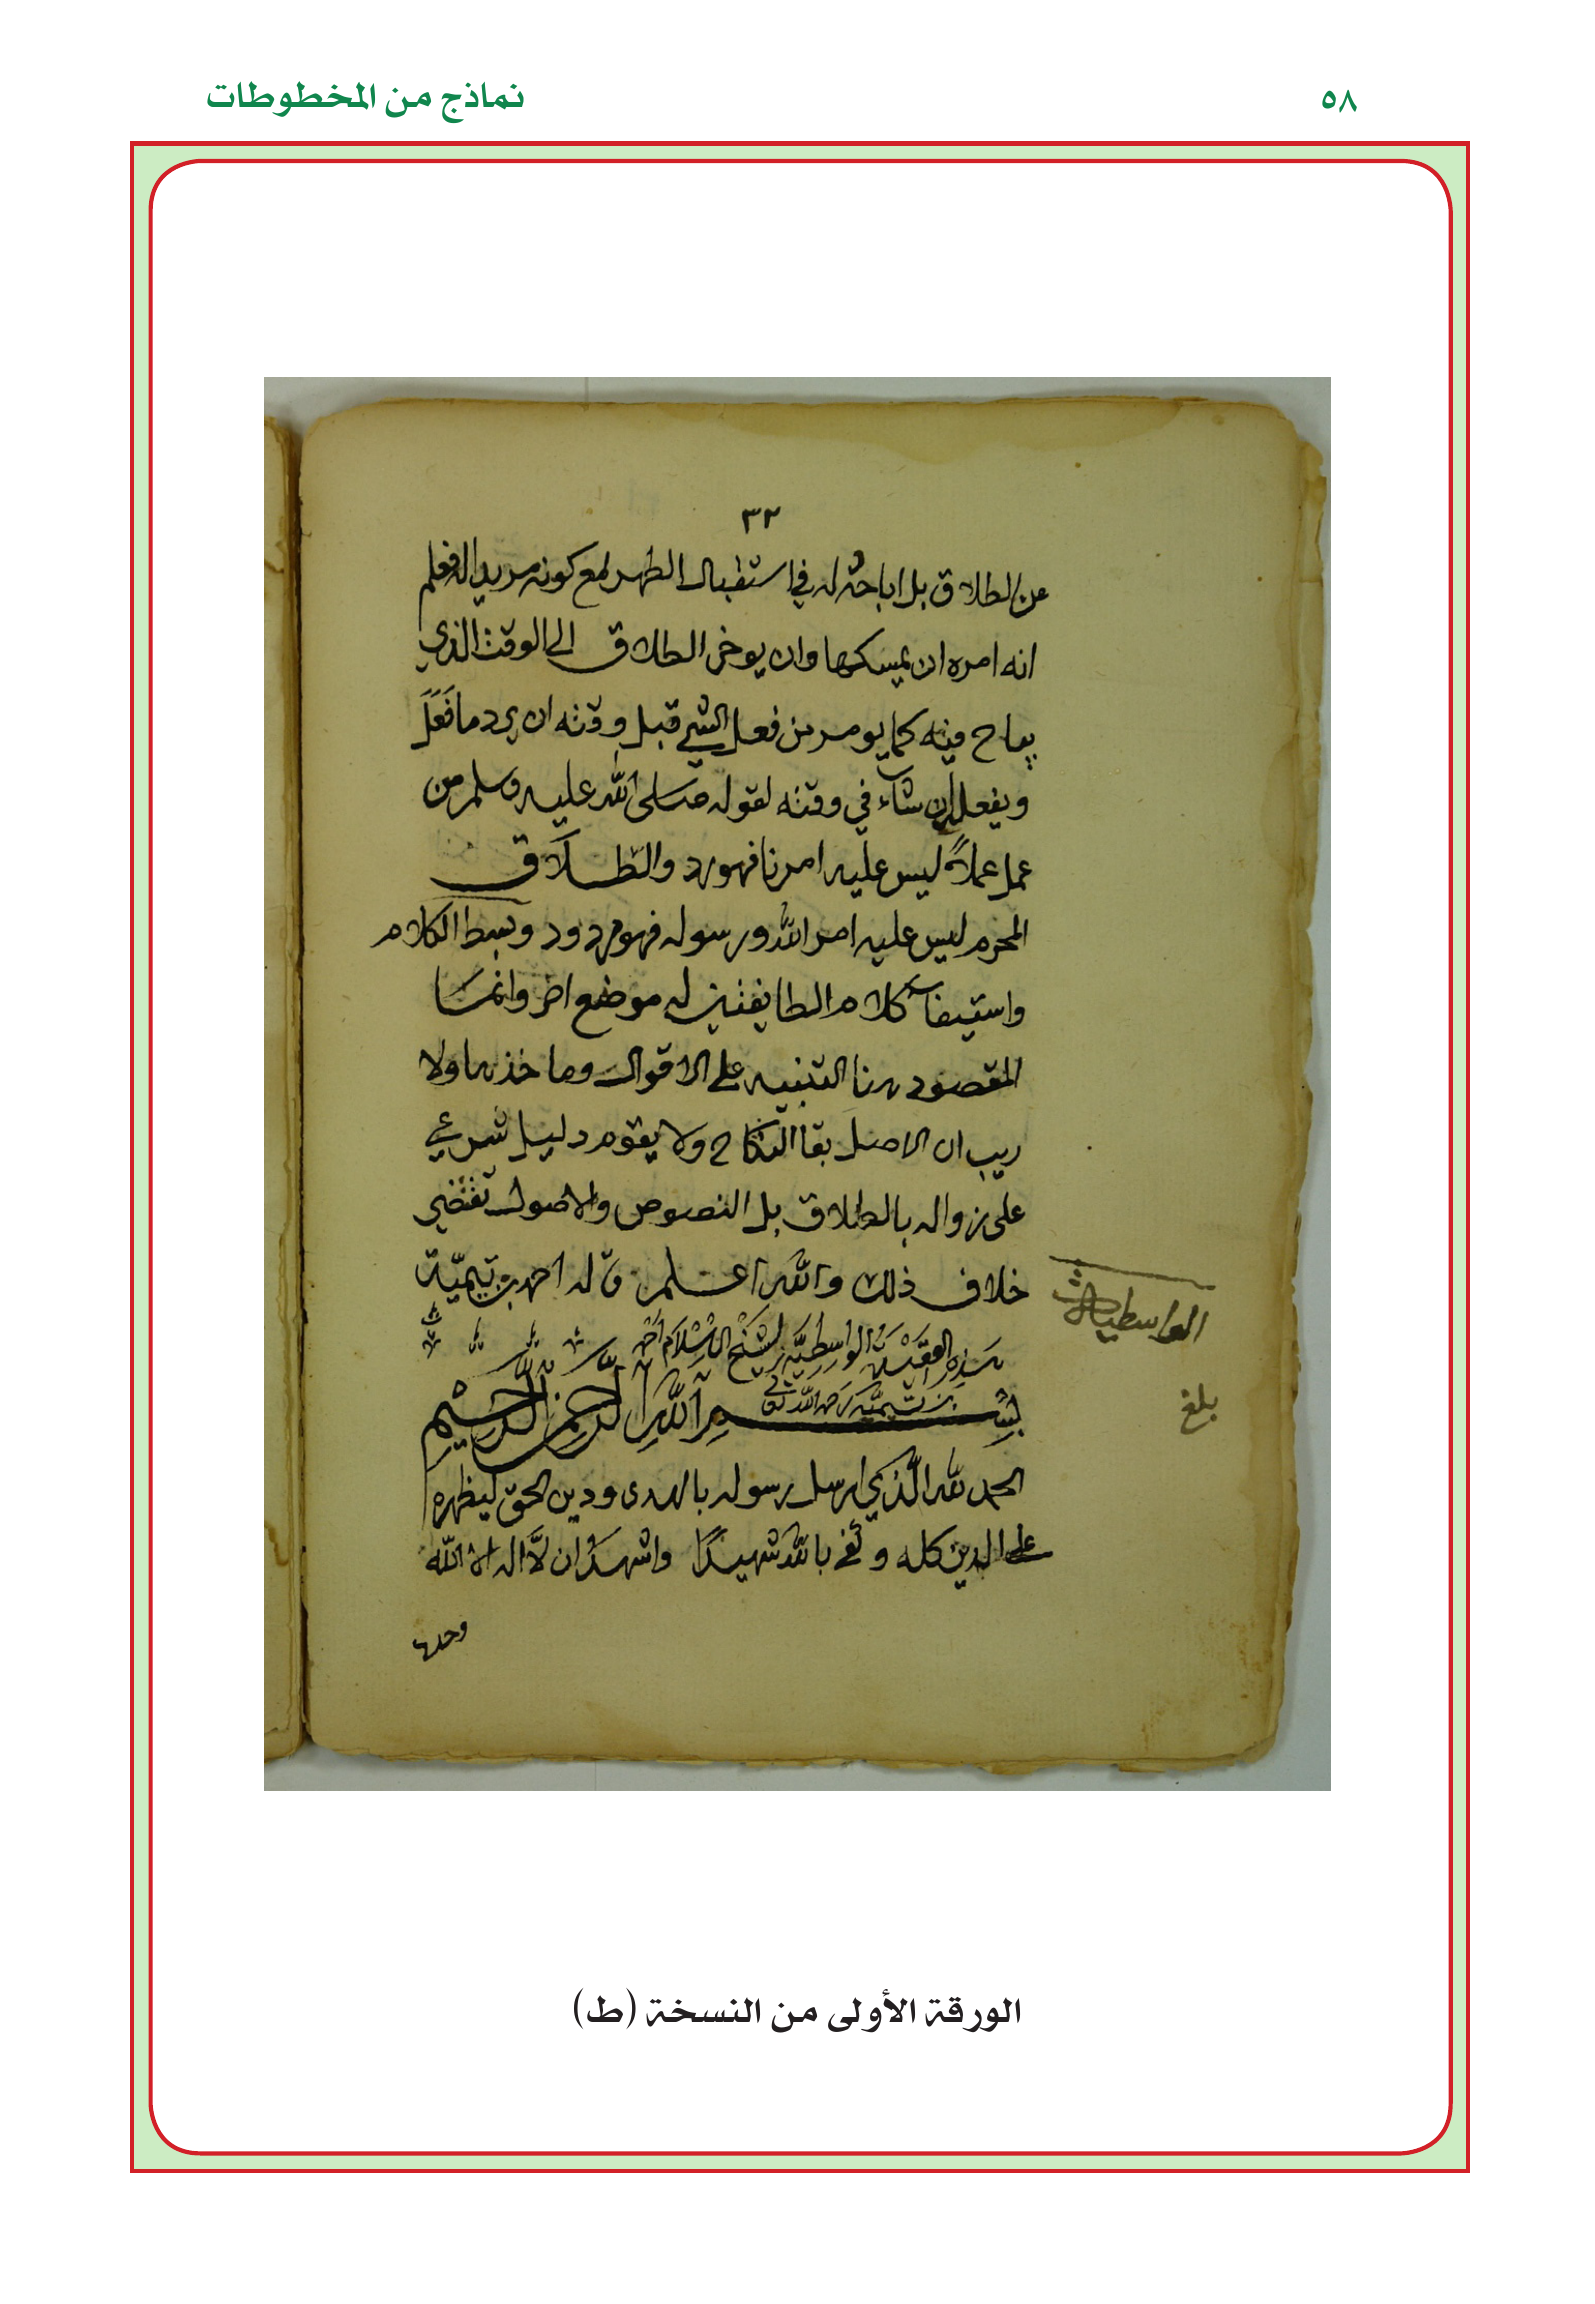 ٥٨
نماذج من المخطوطات
٣٢
عن الطلاق بل اباحته له في استقبال الطهر مع كونه مريدا له فعلم
انه امره ان يمسكها وان يوخر الطلاق الى الوقت الذي
يباح فيه كما يومر من فعل الشي قبل وقته ان يرد ما فَعَلَ
ويفعله ان شاء في وقته لقوله صلى الله عليه وسلم من
عمل عملاً ليس عليه امرنا فهو رد والطلاق
المحرم ليس عليه امر الله ورسوله فهو مردود وبسط الكلام
واستيفاء كلام الطايفتين له موضع اخر وانما
المقصود هنا التنبيه على الاقوال وماخذها ولا
ريب ان الاصل بقا النكاح ولا يقوم دليل شرعي
على زواله بالطلاق بل النصوص والاصول تقتضي
خلاف ذلك والله اعلم قاله احمد بن تيمية
الواسطية
هذه العقيدة الواسطية لشيخ الاسلام احمد
بن تيمية رحمه الله تعالى
بسم الله الرحمن الرحيم
بلغ
الحمد لله الذي ارسل رسوله بالهدى ودين الحق ليظهره
على الدين كله وكفى بالله شهيدًا واشهد ان لا اله الا الله
وحده
الورقة الأولى من النسخة (ط)